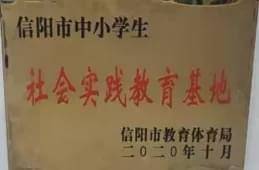 信阳市中小学生
社会实践教育基地
信阳市教育体育局
二〇二〇年十月